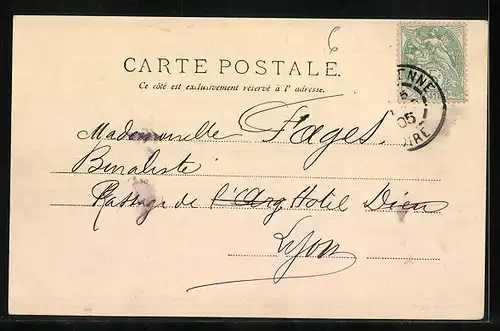 6
CARTE POSTALE.
Ce côté est exclusivement réservé à l'adresse.
ENNE
05
OIRE
Mademoiselle Fages
Buraliste
Passage de l'Arg Hotel Dieu
Lyon